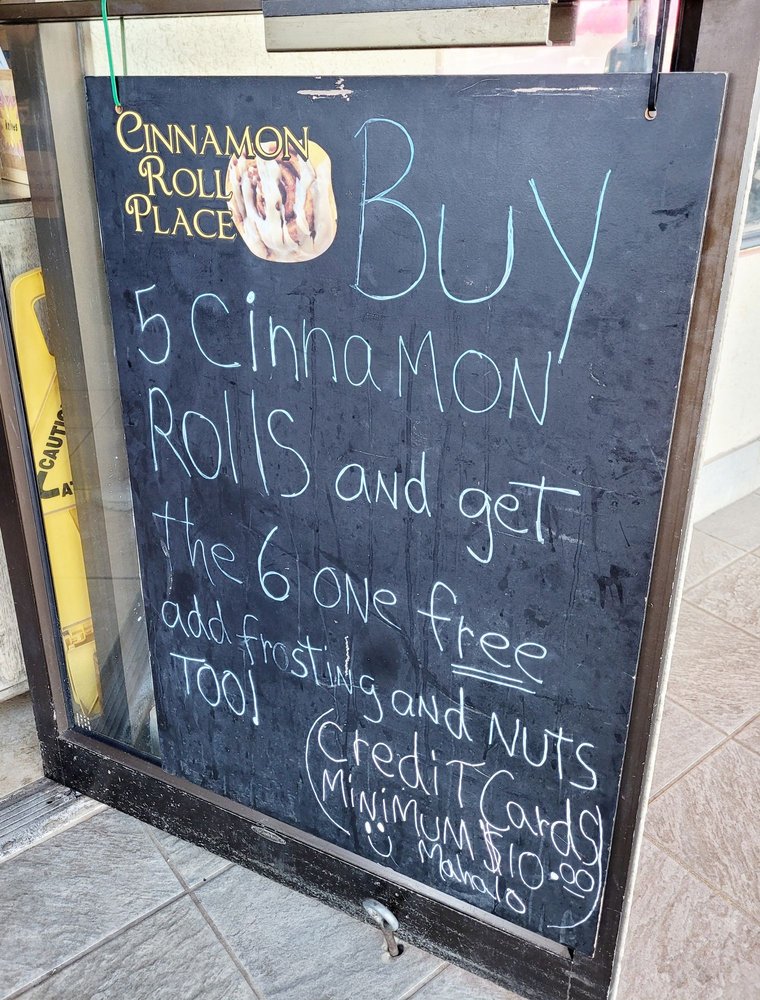 CINNAMON
ROLL
PLACE
BUY
5 CinnaMON
ROllS AND geT
the 6 ONe free
add frosting and NUTS
TOO!
(CrediT Cards
MiniMUM $10.00
Mahalo)
CAUTIO
AT